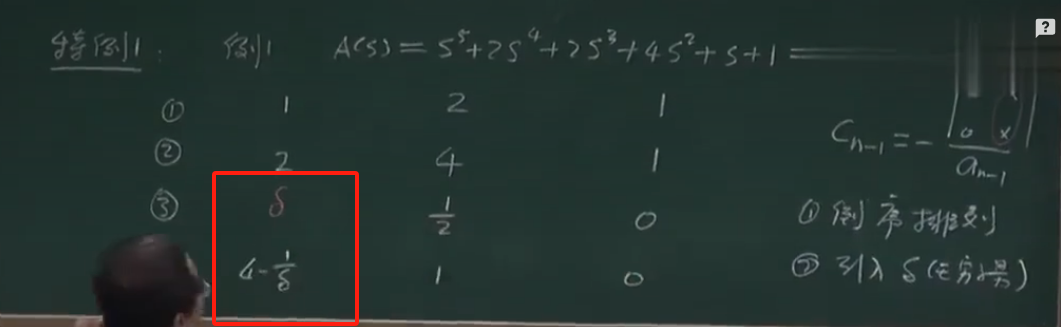 特例1: 例1 A(s) = s⁵+2s⁴+2s³+4s²+s+1 =
① 1 2 1
② 2 4 1
③ δ 1/2 0
4-1/δ 1 0
Cₙ₋₁ = - | 0 x | / aₙ₋₁
① 倒序排列
② 引入 δ(无穷小量)
?